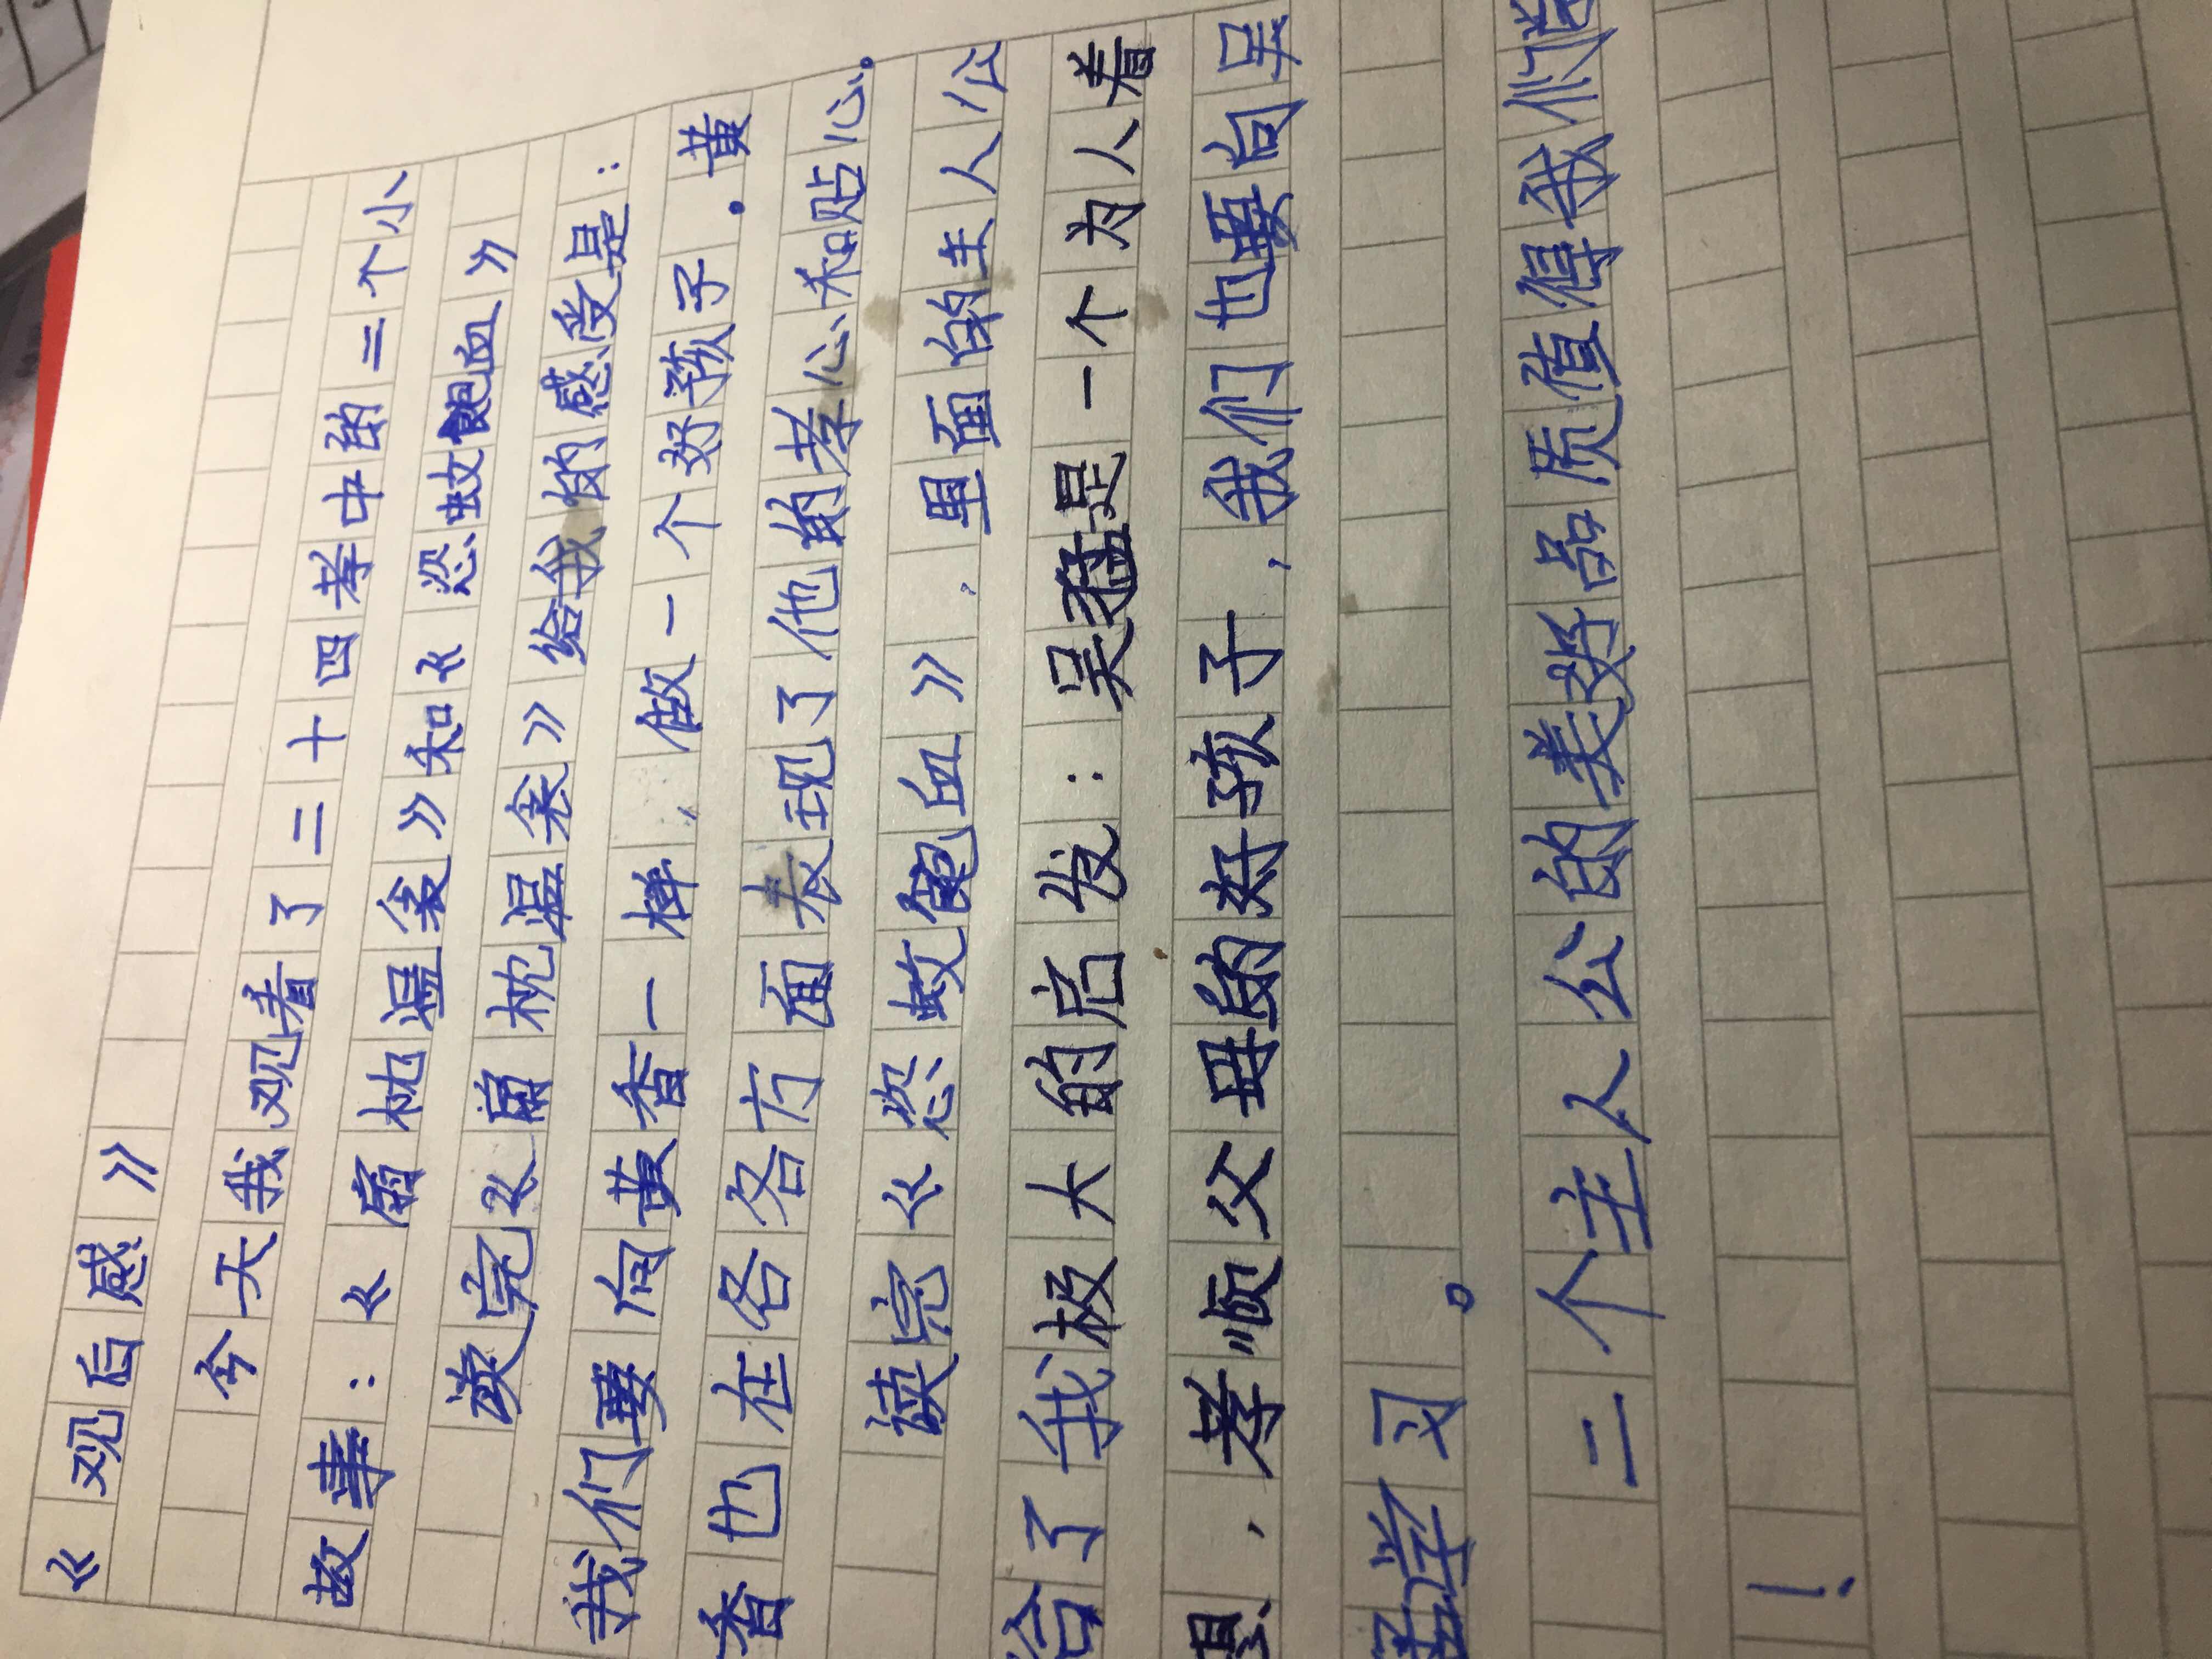 《观后感》
今天我观看了二十四孝中的二个小
故事:《扇枕温衾》和《恣蚊饱血》
读完《扇枕温衾》给我的感受是:
我们要向黄香一样,做一个好孩子.黄
香也在各各方面表现了他的孝心和贴心。
读完《恣蚊饱血》,里面的主人公
给了我极大的启发:吴猛是一个为人着
想,孝顺父母的好孩子,我们也要向吴
猛学习。
二个主人公的美好品质值得我们
!